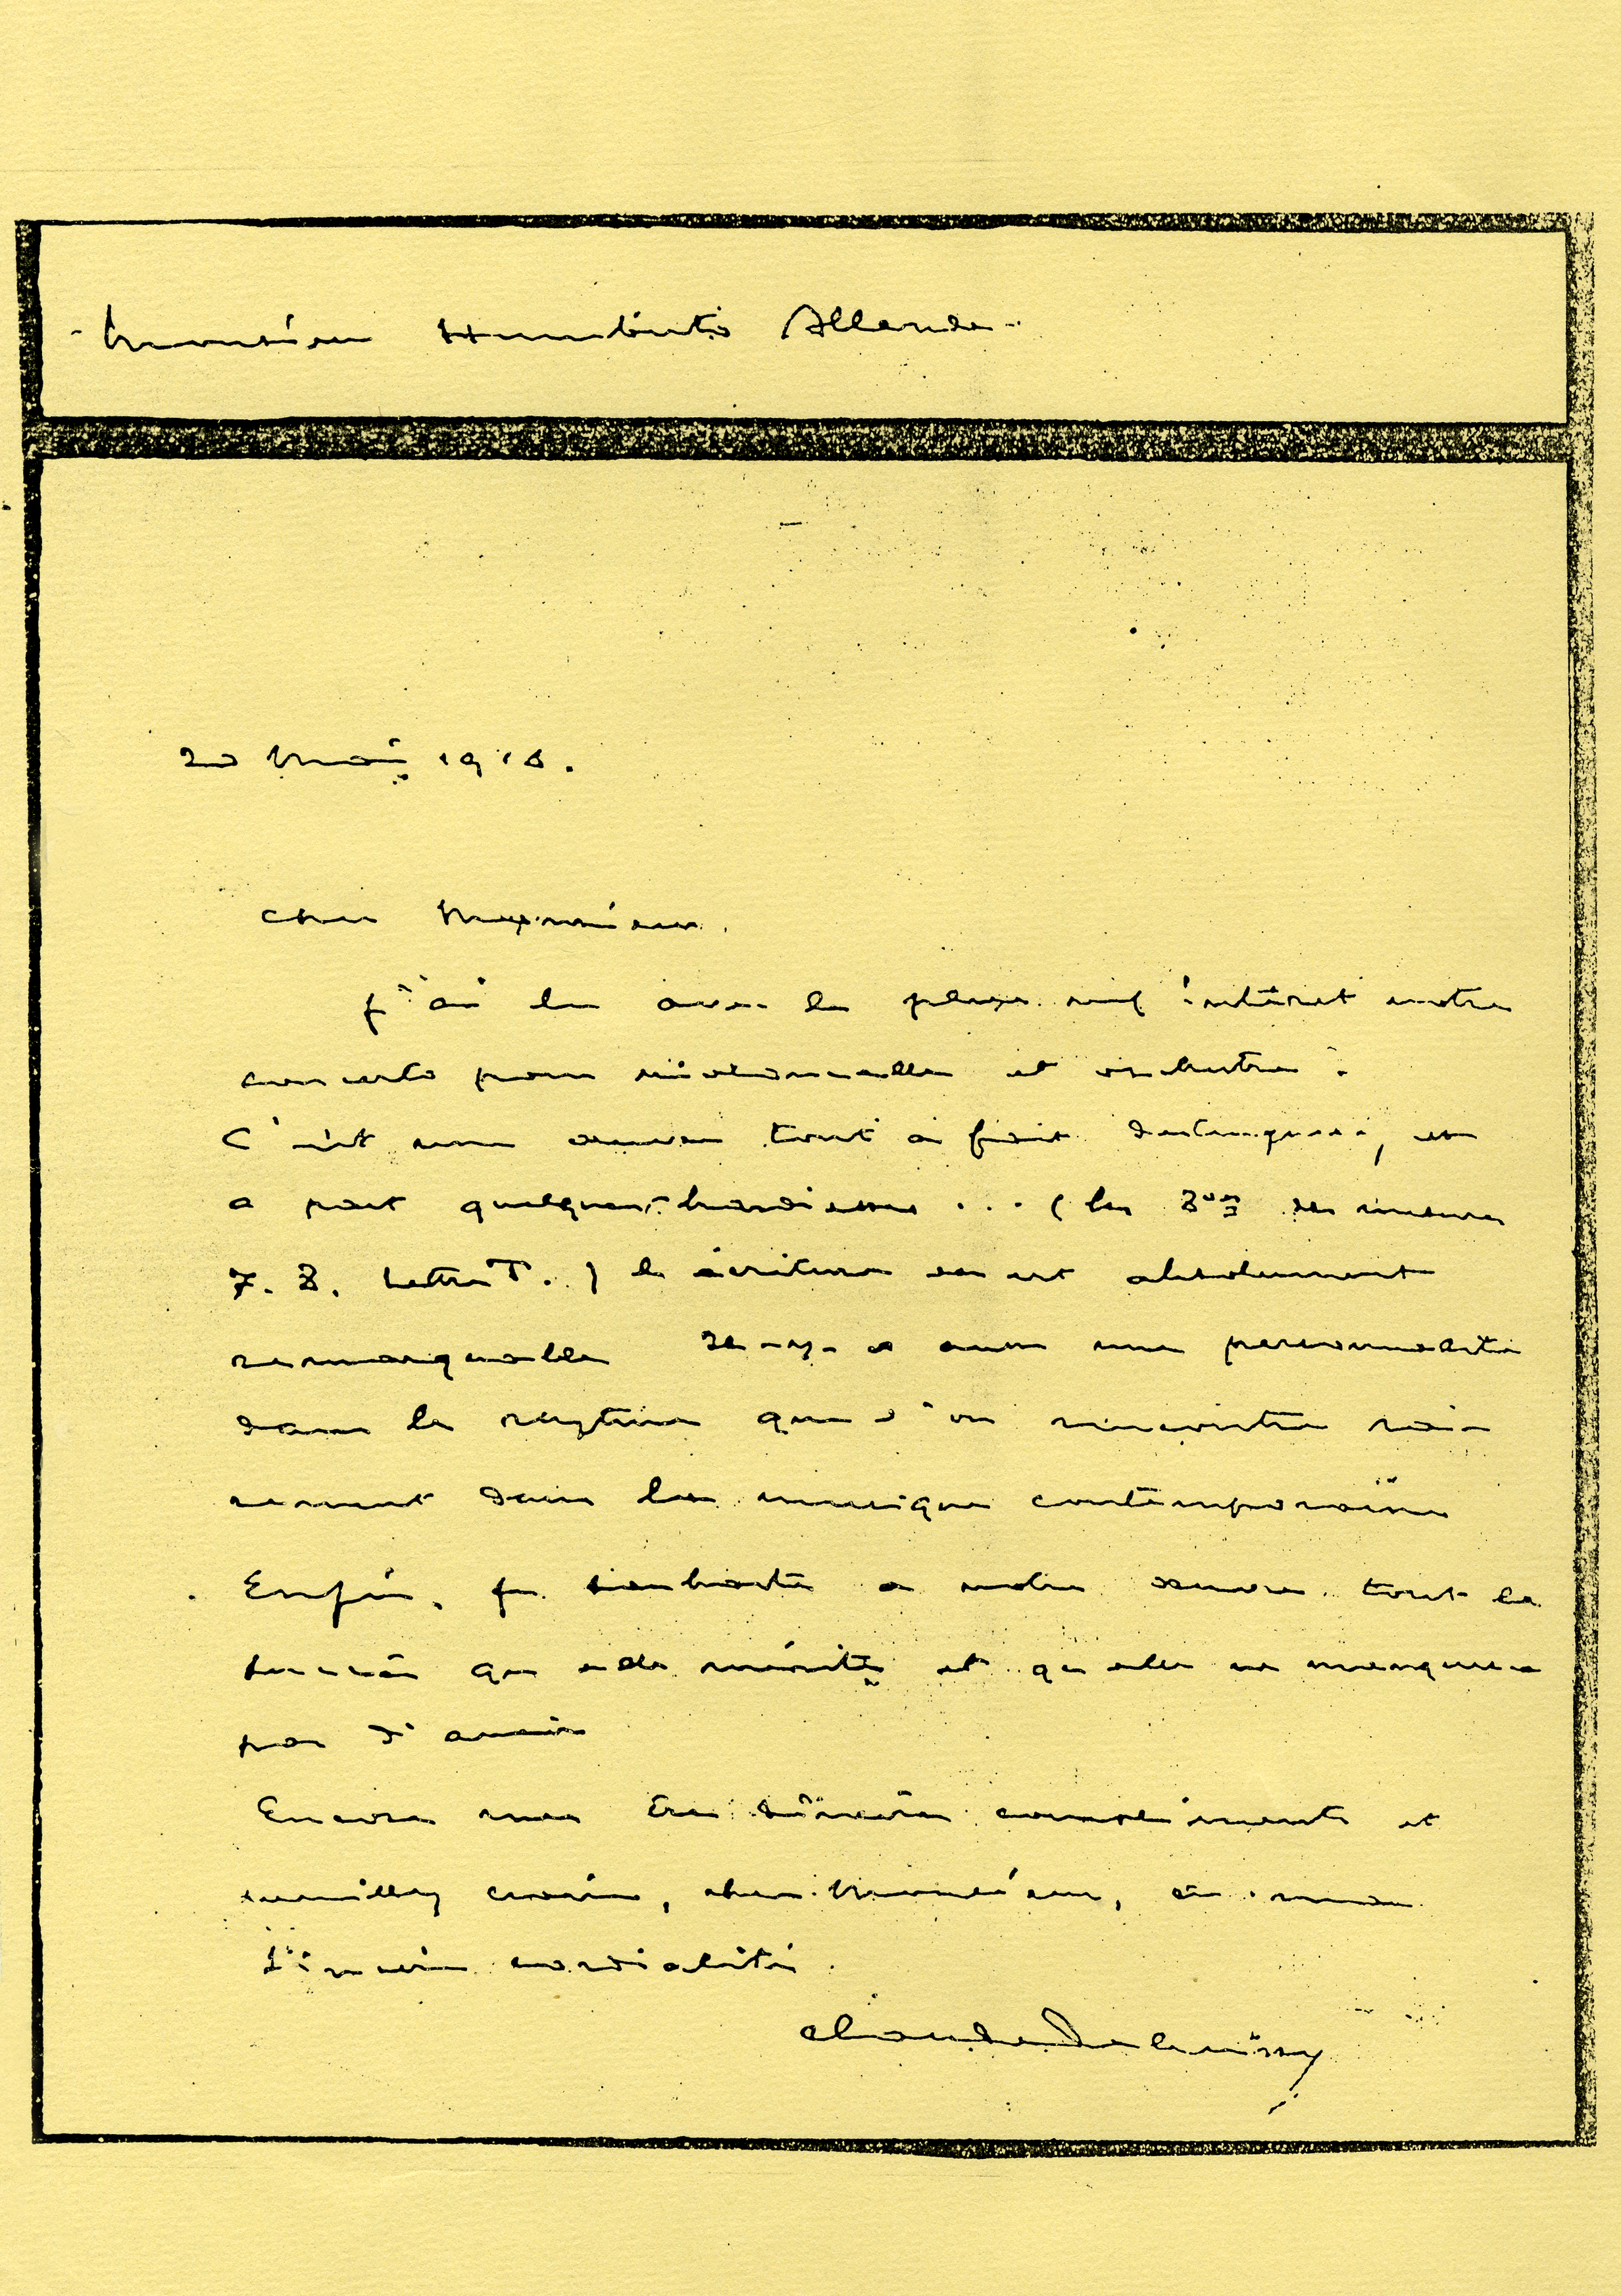 Monsieur Humberto Allende
20 Mai 1916.
Cher Monsieur,
j'ai lu avec le plus vif intérêt votre
concerto pour violoncelle et orchestre.
C'est une œuvre tout à fait distinguée, et
a part quelques hardiesses... (les des mesures
7. 8. Lettre T.) l'écriture en est absolument
remarquable Il-y-a aussi une personnalité
dans le rythme que l'on rencontre ra-
rement dans la musique contemporaine
Enfin, je souhaite a votre œuvre tout le
succès qu'elle mérite et qu'elle ne manquera
pas d'avoir
Encore mes très sincères compliments et
veuillez croire, cher Monsieur, à ma
sincère cordialité.
Claude Debussy